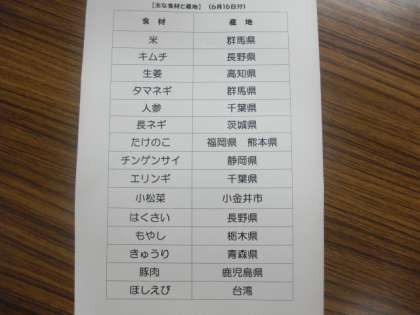 【主な食材と産地】 (6月16日分)
食材 産地
米 群馬県
キムチ 長野県
生姜 高知県
タマネギ 群馬県
人参 千葉県
長ネギ 茨城県
たけのこ 福岡県 熊本県
チンゲンサイ 静岡県
エリンギ 千葉県
小松菜 小金井市
はくさい 長野県
もやし 栃木県
きゅうり 青森県
豚肉 鹿児島県
ほしえび 台湾